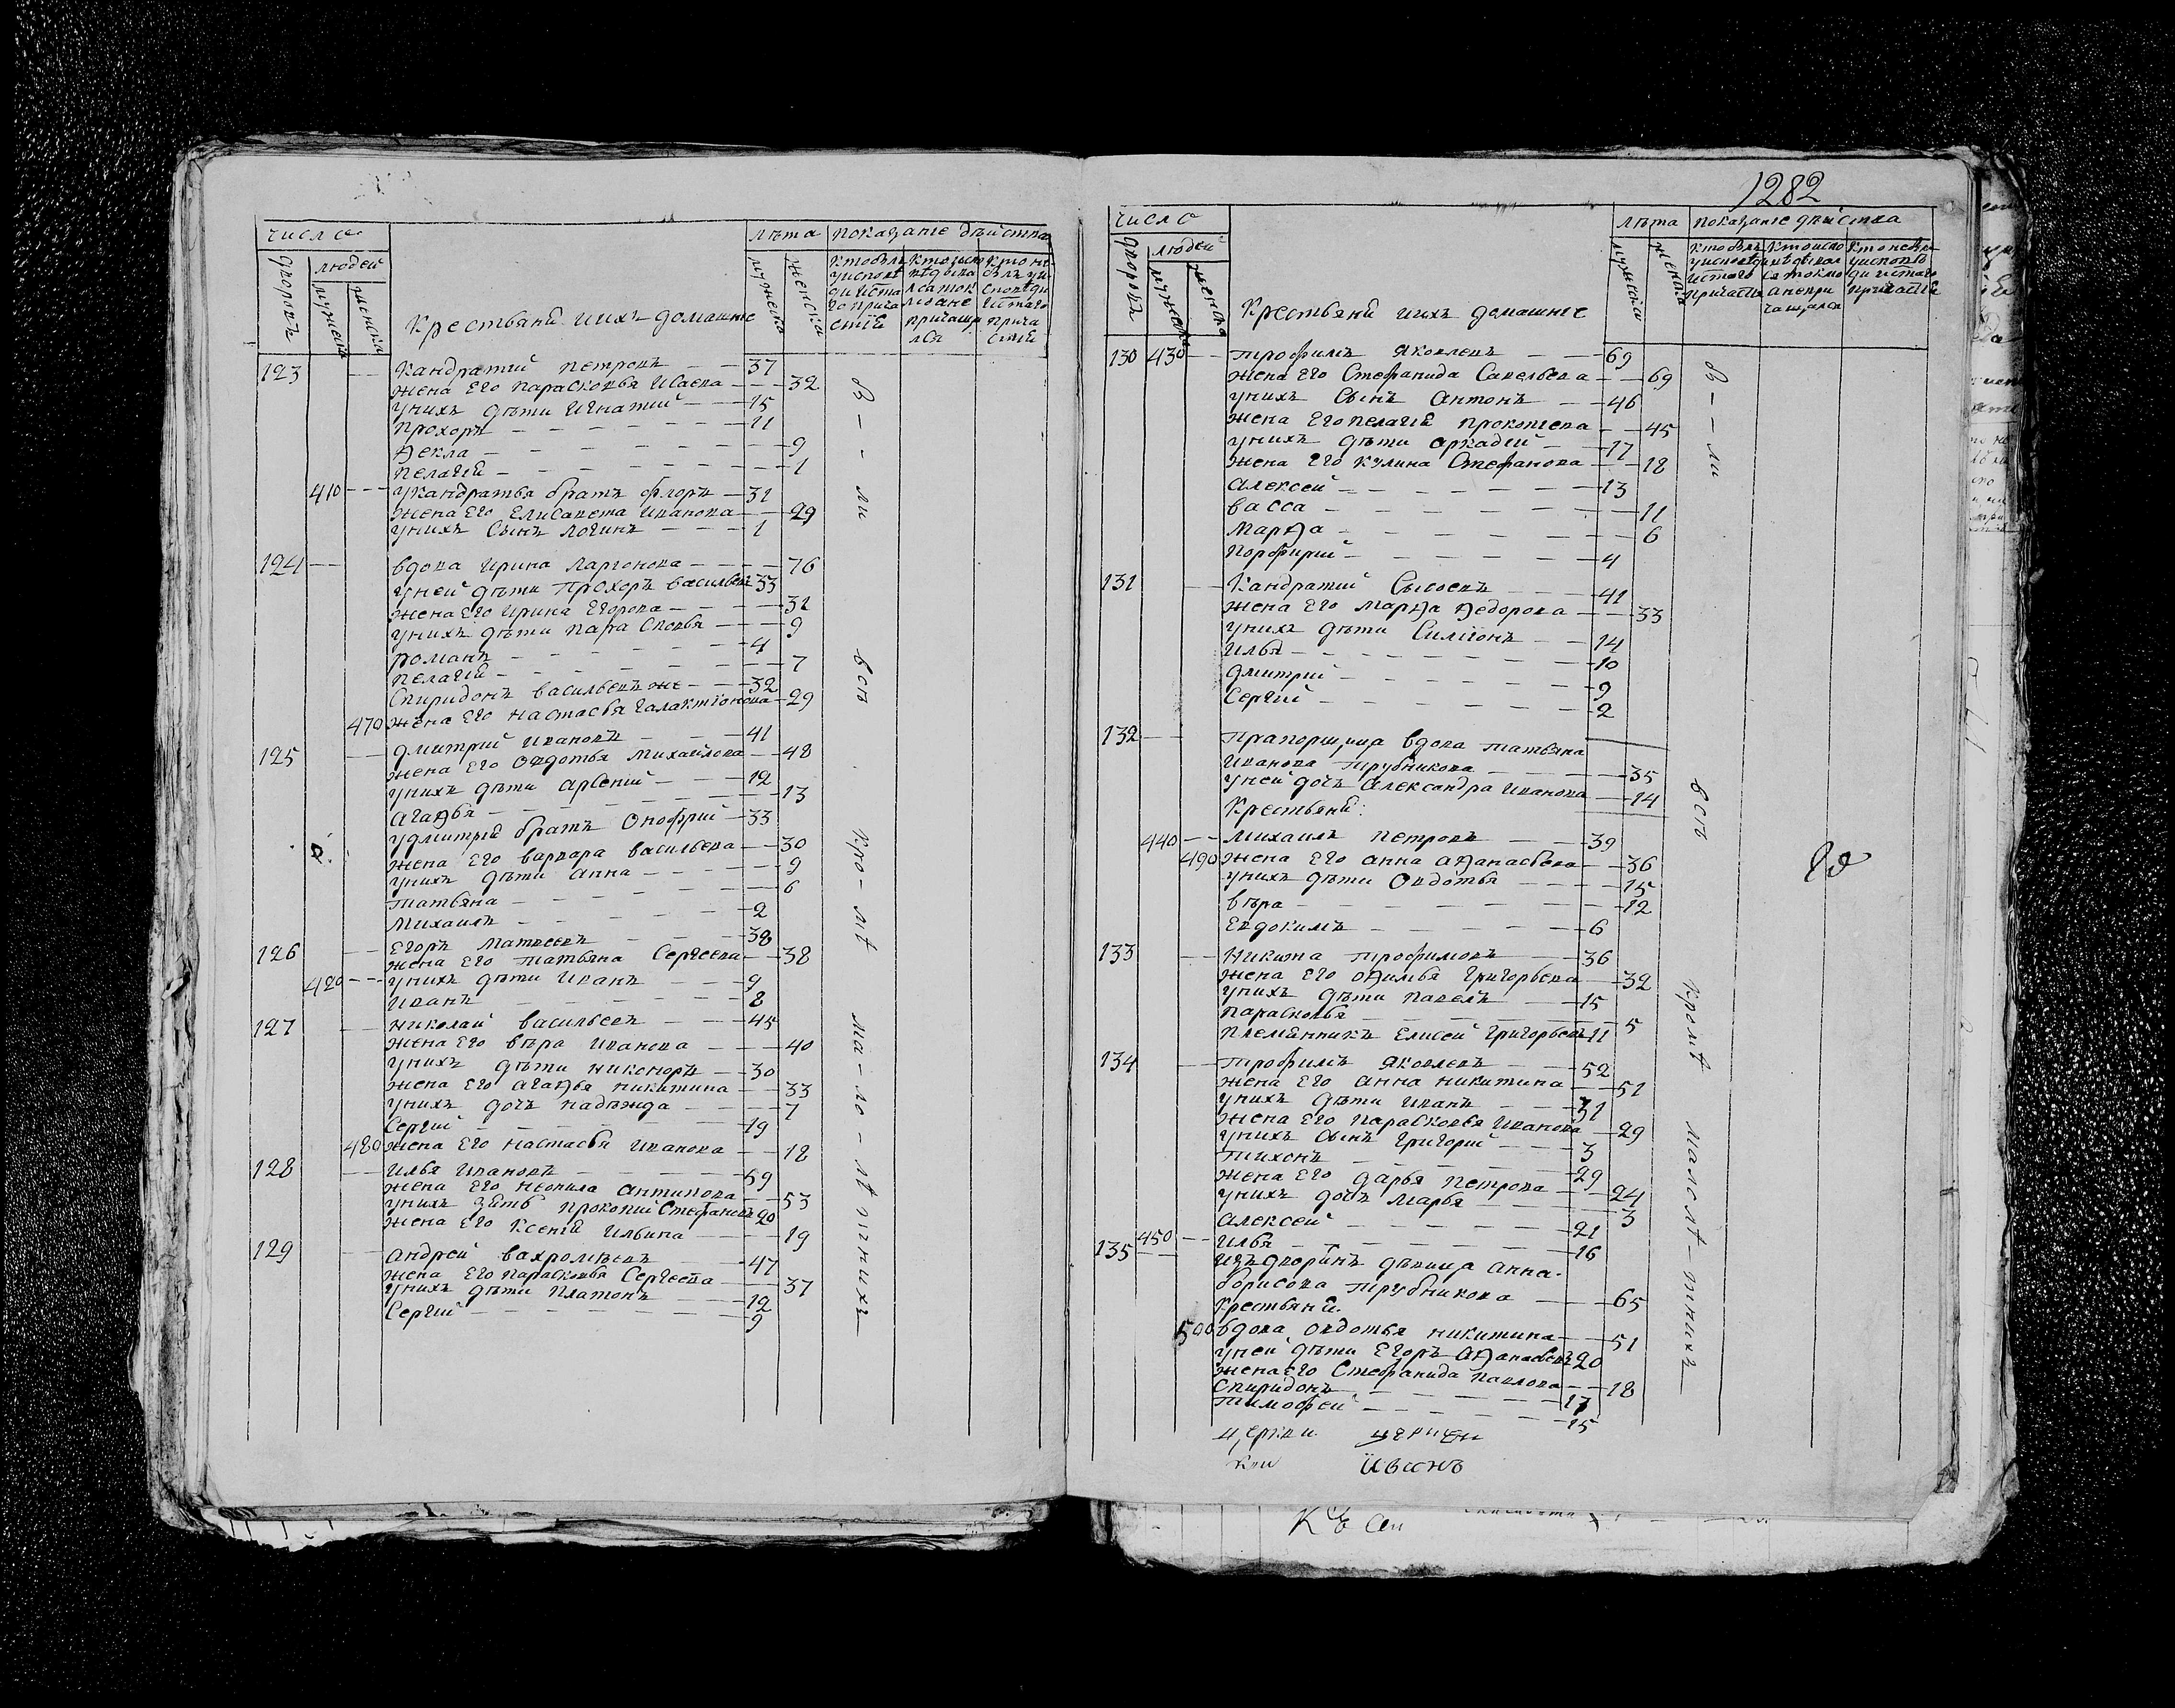 число
лѣта показанїе дѣйства
дворовъ
людей
мужеска
женска
мужеска
женска
Крестьяня иихъ домашние
123 Кандратий петровъ 37
жена Его парасковья Исаева 32
унихъ дѣти Игнатий 15
прохоръ 11
Ѳекла 9
пелагѣя 1
410 укандратья братъ флоръ 31
жена Его Елисавета Иванова 29
унихъ сынъ логинъ 1
124 вдова Ирина ларионова 76
уней дѣти прохоръ васильевъ 33
жена Его Ирина Егорова 31
унихъ дѣти парасковья 9
романъ 4
пелагѣя 7
Спиридонъ васильевъ же 32
470 жена Его настасья галактїонова 29
125 дмитрий ивановъ 41
жена Его овдотья михайлова 48
унихъ дѣти арсений 12
агаѳья 13
удмитрия братъ онофрий 33
жена Его варвара васильева 30
унихъ дѣти анна 9
татьяна 6
михаилъ 2
126 Егоръ матвеевъ 38
жена Его татьяна Сергеева 38
420 унихъ дѣти иванъ 9
иванъ 8
127 николай васильевъ 45
жена Его вѣра иванова 40
унихъ дѣти никоноръ 30
жена Его агаѳья никитина 33
унихъ дочь надежда 7
Сергий 19
480 жена Его настасья иванова 18
128 илья ивановъ 69
жена Его неонила антипова 53
унихъ зять прокопий Стефановъ 20
жена Его Ксения ильина 19
129 андрей вахромѣевъ 47
жена Его парасковья Сергеева 37
унихъ дѣти платонъ 12
Сергий 9
В ли всѣ кро-мѣ ма-ло-лѣтнихъ
1282
число
лѣта показанїе дѣйства
дворовъ
людей
мужеска
женска
мужеска
женска
Крестьяня иихъ домашние
130 430 трофимъ яковлевъ 69
жена Его Стефанида Савельева 69
унихъ сынъ антонъ 46
жена Его пелагѣя прокопиева 45
унихъ дѣти аркадий 17
жена Его кулина Стефанова 18
алексей 13
васса 11
марѳа 6
порфирий 4
131 Кандратий Сысоевъ 41
жена Его марѳа Ѳедорова 33
унихъ дѣти Симïонъ 14
илья 10
дмитрий 9
Сергий 2
132 прапорщица вдова татьяна
иванова трубникова 35
уней дочь александра иванова 14
Крестьяня:
440 михаилъ петровъ 39
490 жена Его анна аѳанасьева 36
унихъ дѣти овдотья 15
вѣра 12
Евдокимъ 6
133 никита трофимовъ 36
жена Его оѳимья григорьева 32
унихъ дѣти павелъ 15
парасковья 5
племянникъ Елисей григорьевъ 11
134 трофимъ яковлевъ 52
жена Его анна никитина 51
унихъ дѣти иванъ 31
жена Его парасковья иванова 29
унихъ сынъ григорий 3
тихонъ 29
жена Его дарья петрова 24
унихъ дочь марья 3
алексей 21
450 илья 16
135 изъ дворянъ дѣвица анна
борисова трубникова 65
Крестьяня.
500 вдова овдотья никитина 51
уней дѣти Егоръ аѳанасьевъ 20
жена Его Стефанида павлова 18
Спиридонъ 17
тимофей 15
В ли всѣ кромѣ малолѣ-тнихъ
церкви
Иванъ